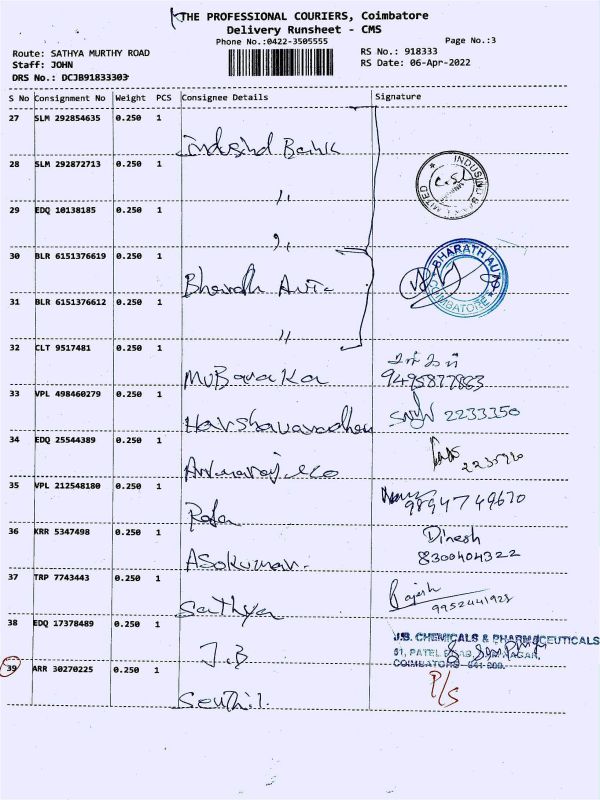 THE PROFESSIONAL COURIERS, Coimbatore
Delivery Runsheet - CMS
Phone No.:0422-3505555
Page No.:3
Route: SATHYA MURTHY ROAD
Staff: JOHN
DRS No.: DCJB91833303
RS No.: 918333
RS Date: 06-Apr-2022
S No Consignment No Weight PCS Consignee Details Signature
27 SLM 292854635 0.250 1
Indusind Bank
28 SLM 292872713 0.250 1
INDUSIND
29 EDQ 10138185 0.250 1
30 BLR 6151376619 0.250 1
Bharath Auto
BHARATH AUTO
COIMBATORE
31 BLR 6151376612 0.250 1
32 CLT 9517481 0.250 1
Mubaraka
9495877863
33 VPL 498460279 0.250 1
Harshavaradhan 2233350
34 EDQ 25544389 0.250 1
35 VPL 212548180 0.250 1
9894749670
36 KRR 5347498 0.250 1
Asokumar. Dinesh
8300404322
37 TRP 7743443 0.250 1
Sathya Rajesh
9952441928
38 EDQ 17378489 0.250 1
J.B J.B. CHEMICALS & PHARMACEUTICALS
51, PATEL NAGAR,
COIMBATORE
39 ARR 30270225 0.250 1
Senthil. P/S